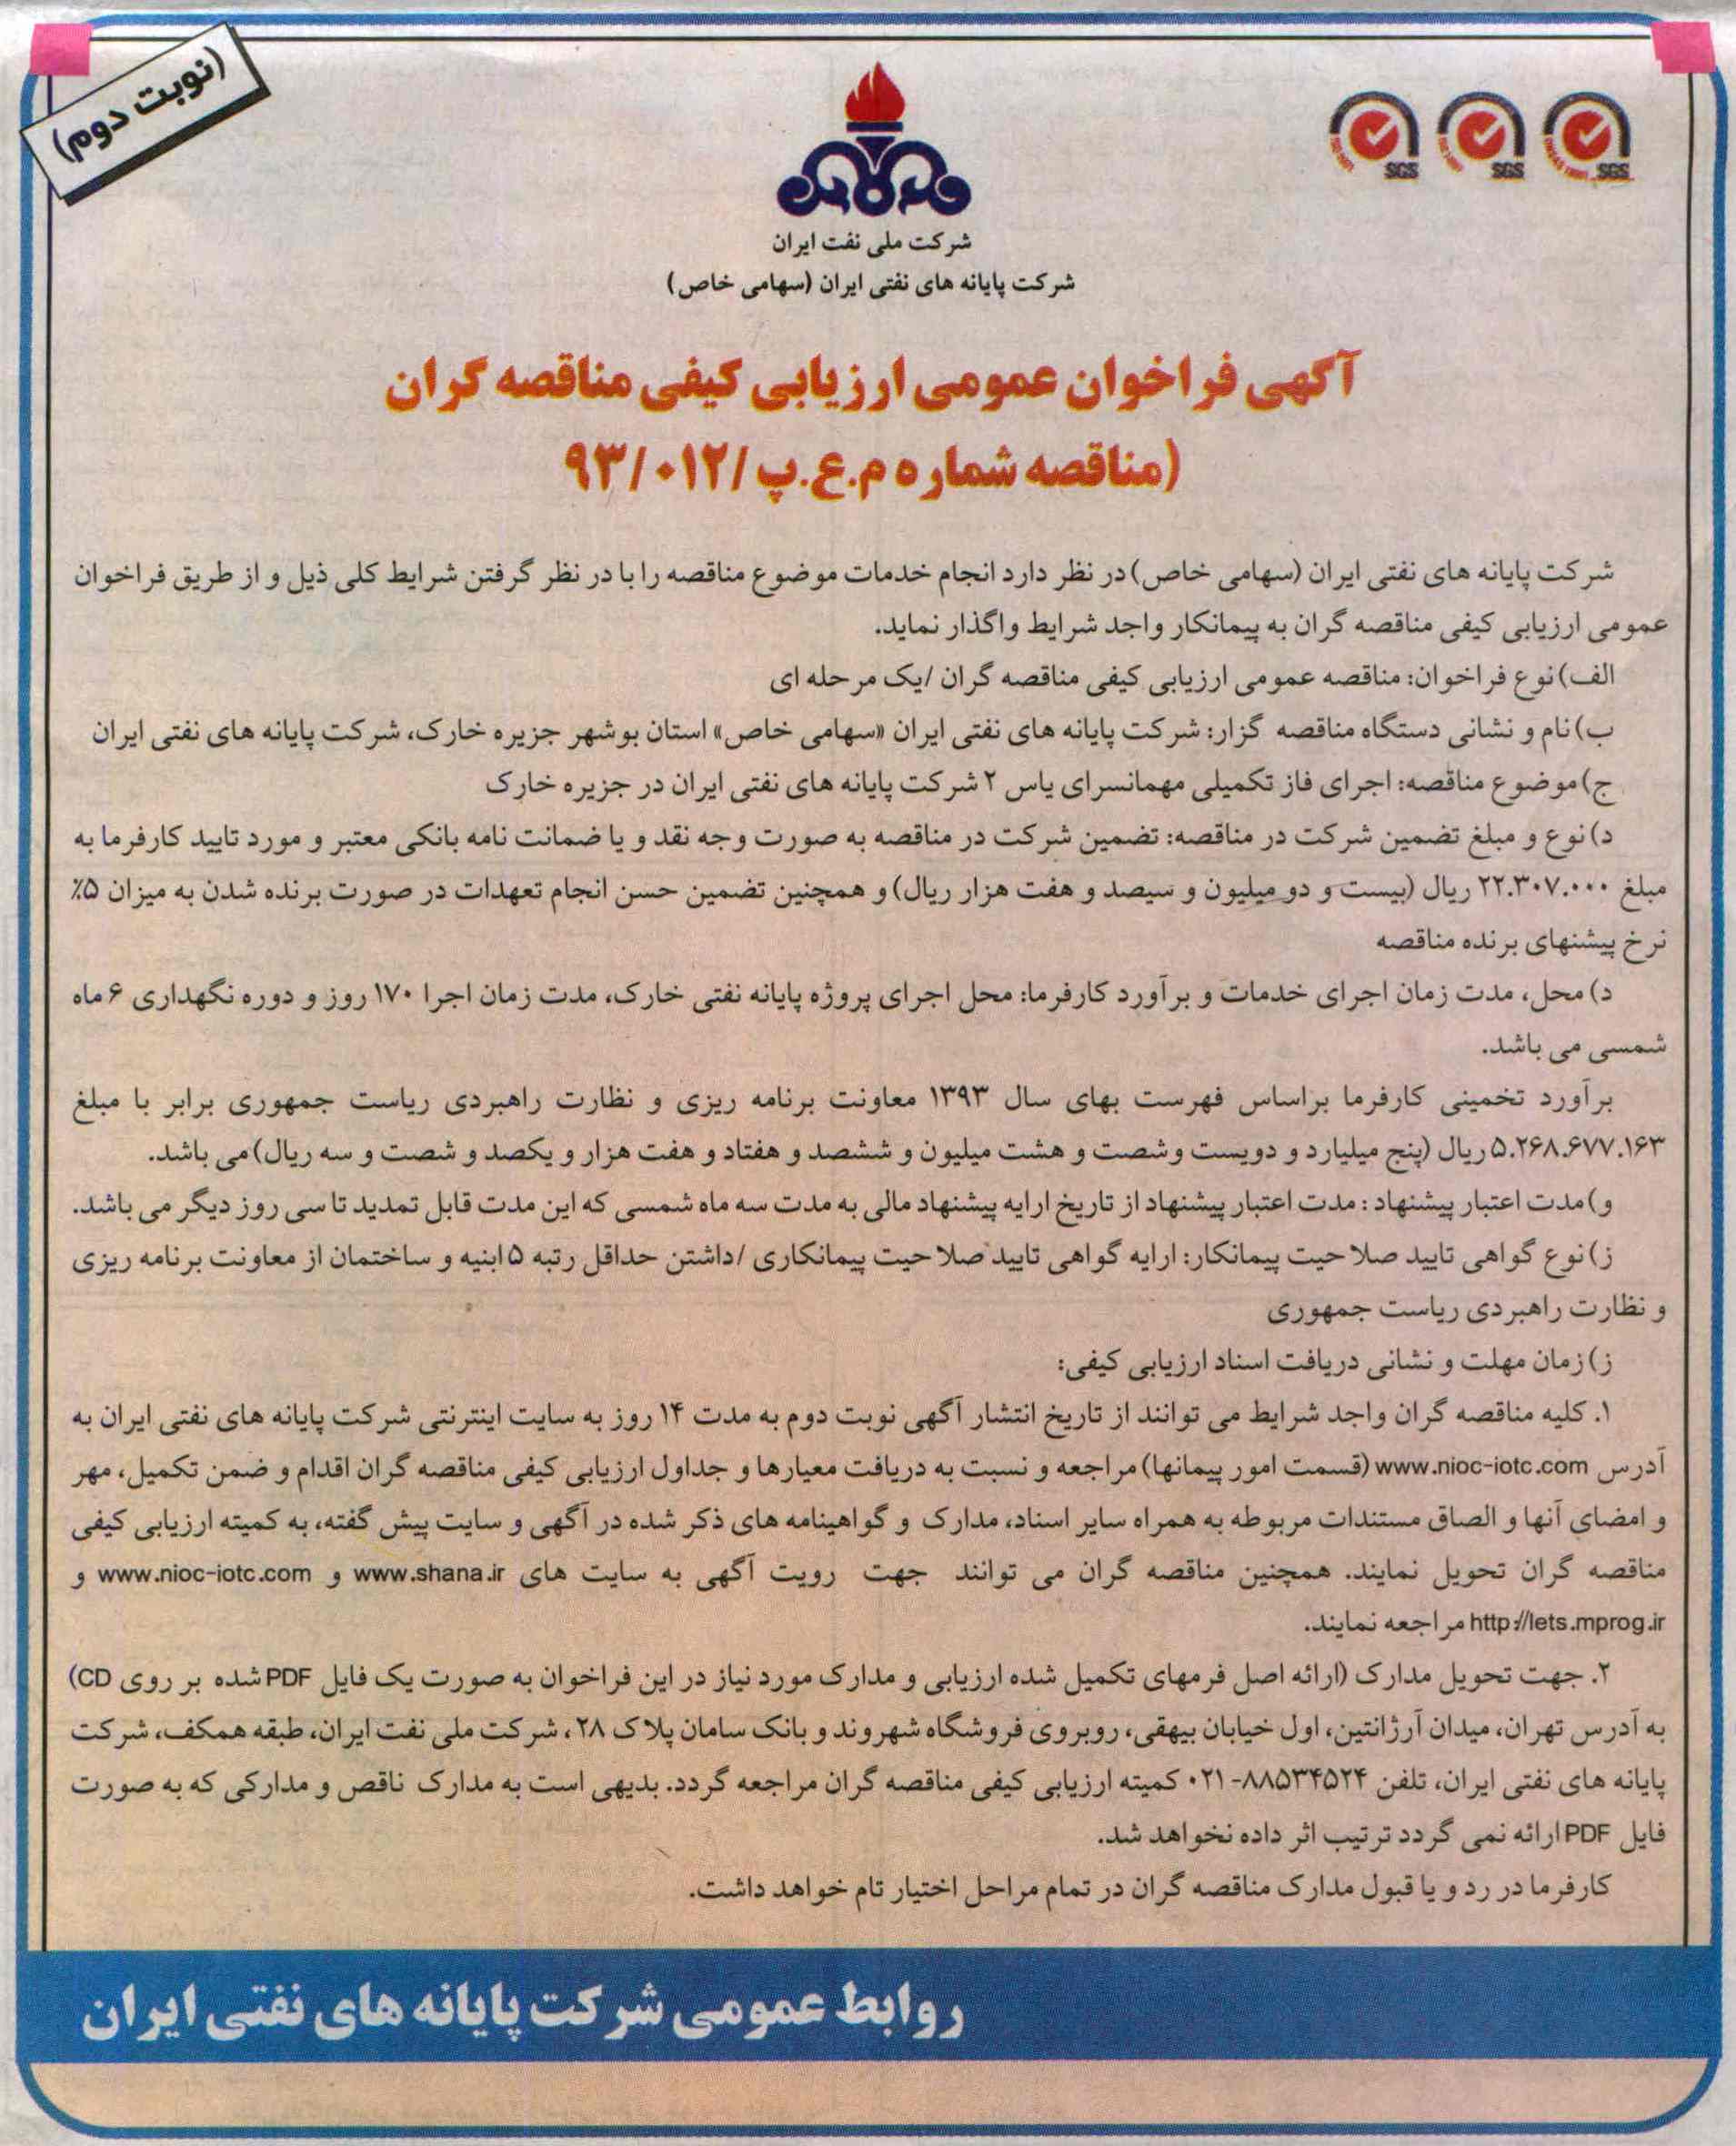 (نوبت دوم)
SGS SGS SGS
شرکت ملی نفت ایران
شرکت پایانه های نفتی ایران (سهامی خاص)
آگهی فراخوان عمومی ارزیابی کیفی مناقصه گران
(مناقصه شماره م.ع.پ/۹۳/۰۱۲
شرکت پایانه های نفتی ایران (سهامی خاص) در نظر دارد انجام خدمات موضوع مناقصه را با در نظر گرفتن شرایط کلی ذیل و از طریق فراخوان
عمومی ارزیابی کیفی مناقصه گران به پیمانکار واجد شرایط واگذار نماید.
الف) نوع فراخوان: مناقصه عمومی ارزیابی کیفی مناقصه گران /یک مرحله ای
ب) نام و نشانی دستگاه مناقصه گزار: شرکت پایانه های نفتی ایران «سهامی خاص» استان بوشهر جزیره خارک، شرکت پایانه های نفتی ایران
ج) موضوع مناقصه: اجرای فاز تکمیلی مهمانسرای یاس ۲ شرکت پایانه های نفتی ایران در جزیره خارک
د) نوع و مبلغ تضمین شرکت در مناقصه: تضمین شرکت در مناقصه به صورت وجه نقد و یا ضمانت نامه بانکی معتبر و مورد تایید کارفرما به
مبلغ ۲۲.۳۰۷.۰۰۰ ریال (بیست و دو میلیون و سیصد و هفت هزار ریال) و همچنین تضمین حسن انجام تعهدات در صورت برنده شدن به میزان ۵٪
نرخ پیشنهای برنده مناقصه
د) محل، مدت زمان اجرای خدمات و برآورد کارفرما: محل اجرای پروژه پایانه نفتی خارک، مدت زمان اجرا ۱۷۰ روز و دوره نگهداری ۶ ماه
شمسی می باشد.
برآورد تخمینی کارفرما براساس فهرست بهای سال ۱۳۹۳ معاونت برنامه ریزی و نظارت راهبردی ریاست جمهوری برابر با مبلغ
۵.۲۶۸.۶۷۷.۱۶۳ ریال (پنج میلیارد و دویست وشصت و هشت میلیون و ششصد و هفتاد و هفت هزار و یکصد و شصت و سه ریال) می باشد.
و) مدت اعتبار پیشنهاد : مدت اعتبار پیشنهاد از تاریخ ارایه پیشنهاد مالی به مدت سه ماه شمسی که این مدت قابل تمدید تا سی روز دیگر می باشد.
ز) نوع گواهی تایید صلاحیت پیمانکار: ارایه گواهی تایید صلاحیت پیمانکاری /داشتن حداقل رتبه ۵ ابنیه و ساختمان از معاونت برنامه ریزی
و نظارت راهبردی ریاست جمهوری
ز) زمان مهلت و نشانی دریافت اسناد ارزیابی کیفی:
۱. کلیه مناقصه گران واجد شرایط می توانند از تاریخ انتشار آگهی نوبت دوم به مدت ۱۴ روز به سایت اینترنتی شرکت پایانه های نفتی ایران به
آدرس www.nioc-iotc.com (قسمت امور پیمانها) مراجعه و نسبت به دریافت معیارها و جداول ارزیابی کیفی مناقصه گران اقدام و ضمن تکمیل، مهر
و امضای آنها و الصاق مستندات مربوطه به همراه سایر اسناد، مدارک و گواهینامه های ذکر شده در آگهی و سایت پیش گفته، به کمیته ارزیابی کیفی
مناقصه گران تحویل نمایند. همچنین مناقصه گران می توانند جهت رویت آگهی به سایت های www.shana.ir و www.nioc-iotc.com و
http://iets.mprog.ir مراجعه نمایند.
۲. جهت تحویل مدارک (ارائه اصل فرمهای تکمیل شده ارزیابی و مدارک مورد نیاز در این فراخوان به صورت یک فایل PDF شده بر روی CD)
به آدرس تهران، میدان آرژانتین، اول خیابان بیهقی، روبروی فروشگاه شهروند و بانک سامان پلاک ۲۸، شرکت ملی نفت ایران، طبقه همکف، شرکت
پایانه های نفتی ایران، تلفن ۸۸۵۳۴۵۲۴-۰۲۱ کمیته ارزیابی کیفی مناقصه گران مراجعه گردد. بدیهی است به مدارک ناقص و مدارکی که به صورت
فایل PDF ارائه نمی گردد ترتیب اثر داده نخواهد شد.
کارفرما در رد و یا قبول مدارک مناقصه گران در تمام مراحل اختیار تام خواهد داشت.
روابط عمومی شرکت پایانه های نفتی ایران